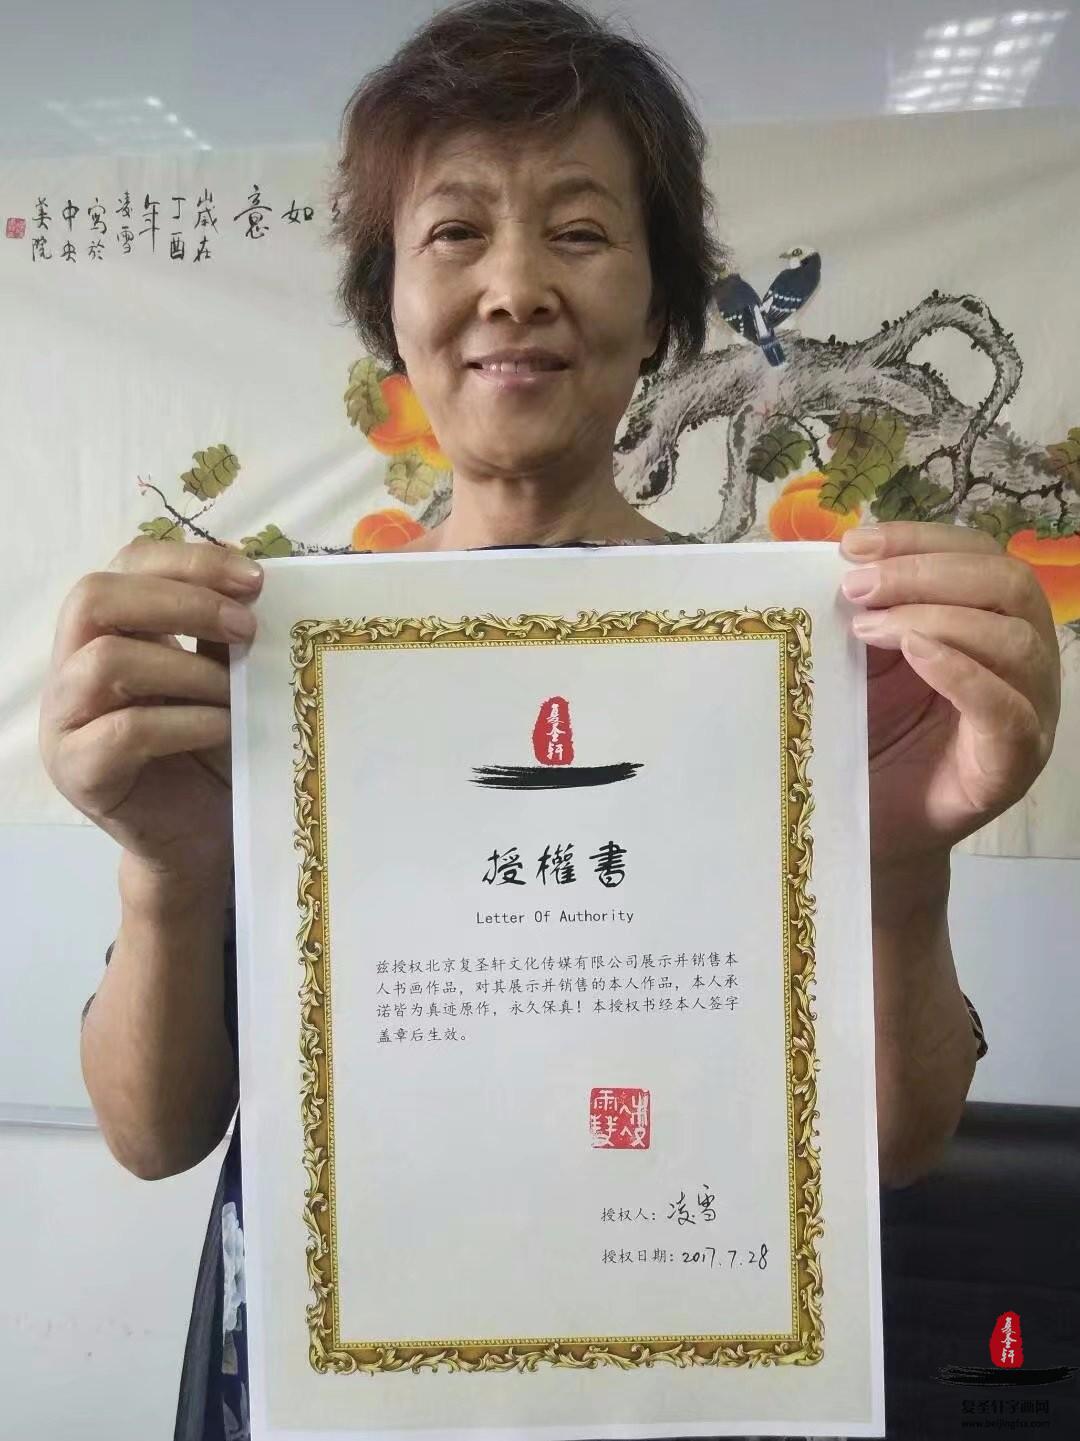 如
意
歲在
丁酉
年
凌雪
寫於
中央
美院
复圣轩
授權書
Letter Of Authority
兹授权北京复圣轩文化传媒有限公司展示并销售本
人书画作品，对其展示并销售的本人作品，本人承
诺皆为真迹原作，永久保真！本授权书经本人签字
盖章后生效。
授权人：凌雪
授权日期：2017.7.28
复圣轩
复圣轩字画网
www.beijingfsx.com